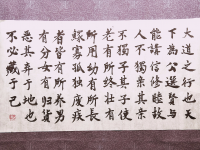 大道之行也天
下為公選賢與
能講信修睦故
人不獨親其親
不獨子其子使
老有所終壯有
所用幼有所長
鰥寡孤獨廢疾
者皆有所養男
有分女有歸貨
惡其棄于地也
不必藏于己